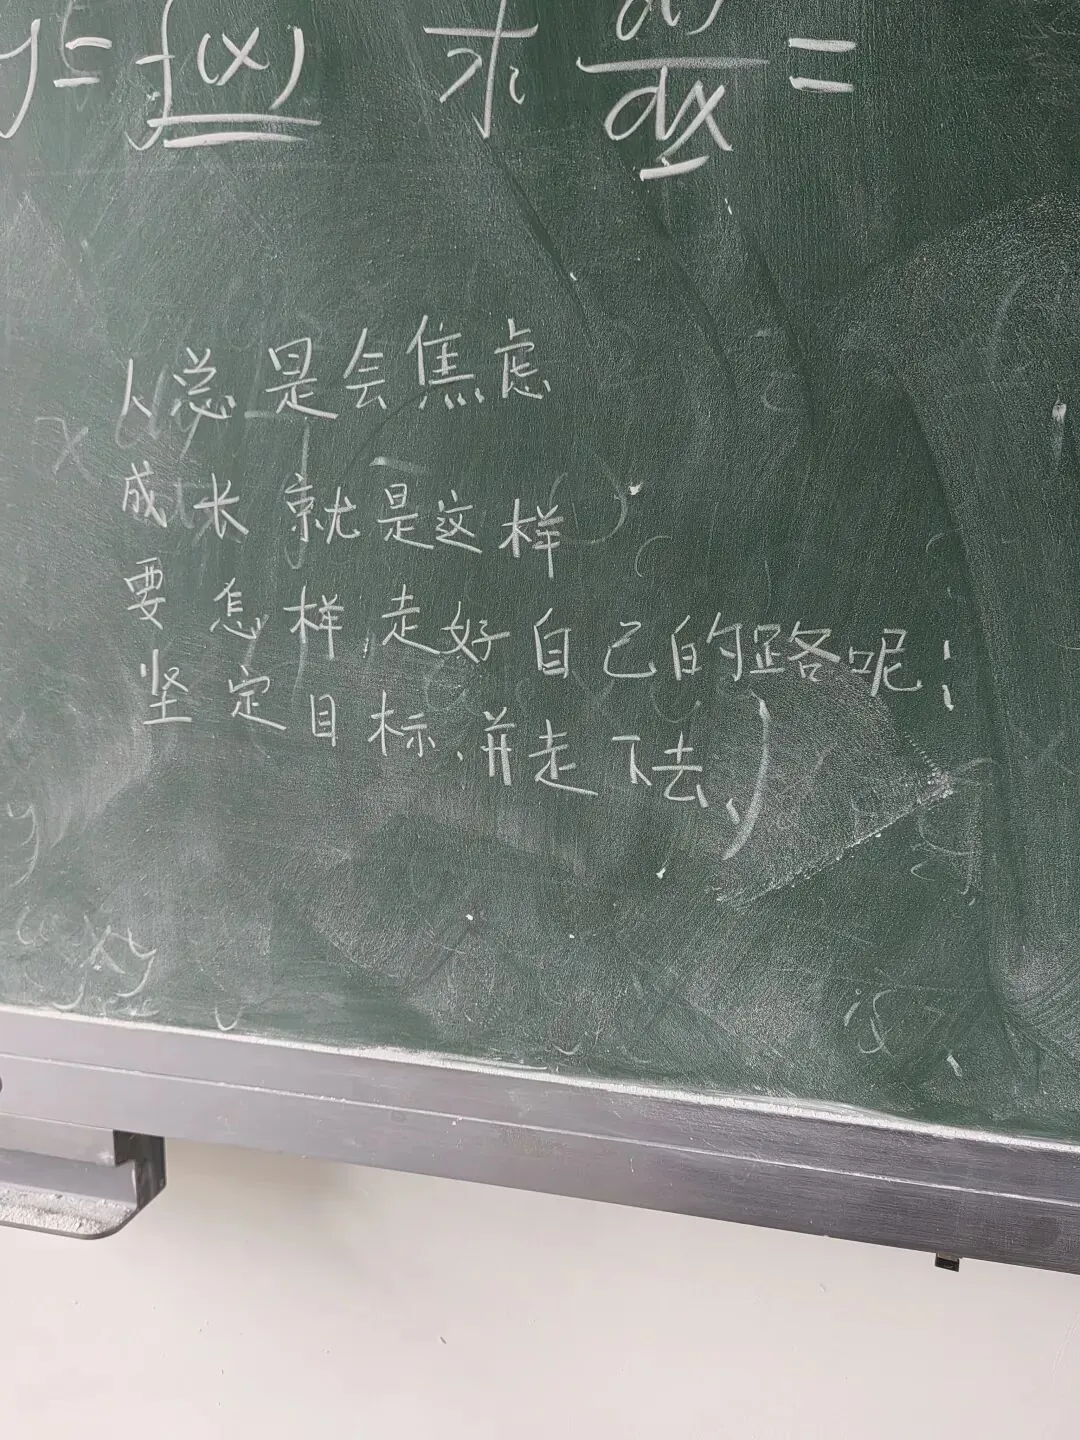 y = f(x) 求 dy/dx =
人总是会焦虑
成长就是这样
要怎样走好自己的路呢!
坚定目标,并走下去,
xy